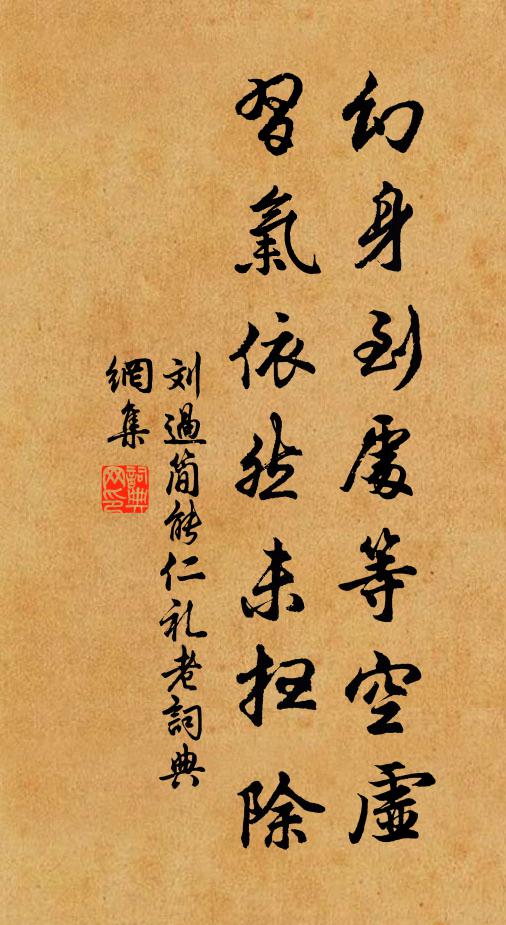 幻身到處等空虛
習氣依然未扫除
刘過简能仁礼老詞典
網集
詞典
网印